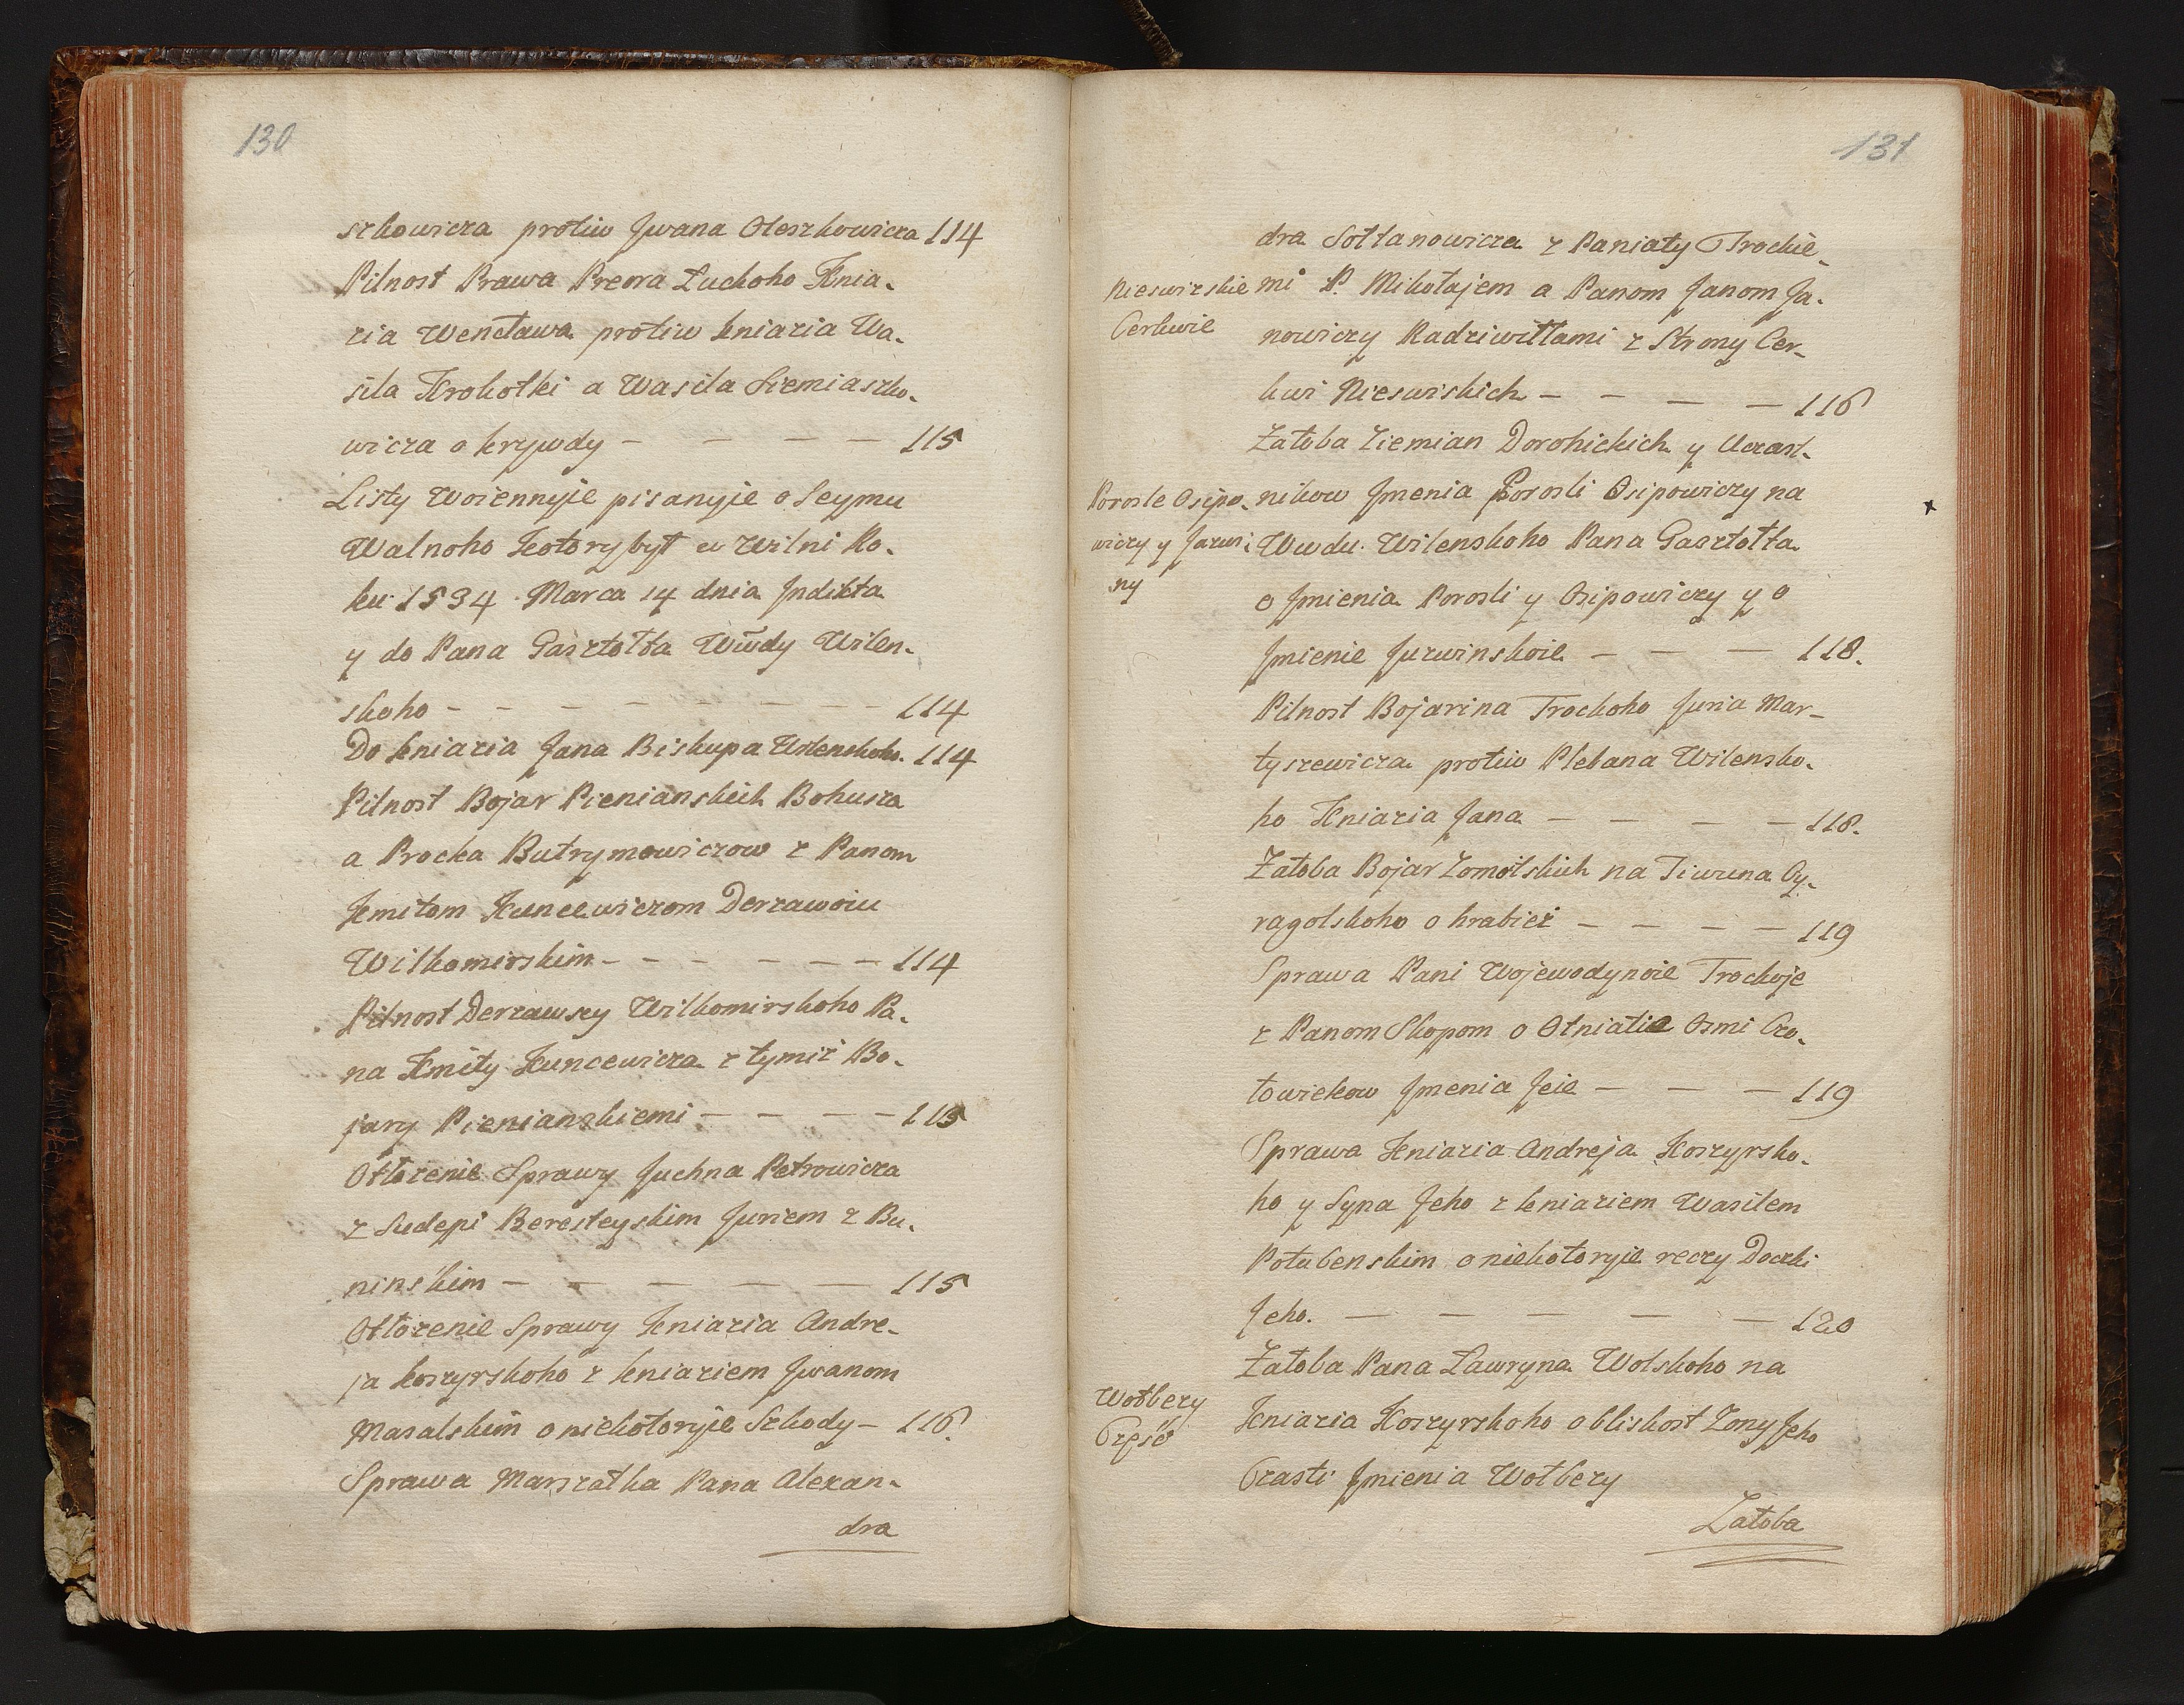 130
szkowicza protiw Jwana Oleszkowicza 114
Pilnost Prawa Preora Łuckoho Knia-
zia Wencława protiw kniazia Wa-
sila Krokotki a Wasila Siemiaszko-
wicza o krywdy - - - - 115
Listy Woiennyje pisanyje o Seymu
Walnoho kotory byt u Wilni Ro-
ku 1534 Marca 14 dnia Jndikta
y do Pana Gasztołta Wwdy Wilen-
skoho - - - - - - - - 114
Do kniazia Jana Biskupa Wilenskoho. 114
Pilnost Bojar Pienianskich Bohusza
a Procka Butrymowiczow z Panom
Kmitom Kuncewiczom Derzawoiu
Wilkomirskim - - - - - - 114
Pilnost Derzawcy Wilkomirskoho Pa-
na Kmity Kuncewicza z tymiż Bo-
jary Pienianskiemi - - - - 115
Otłożenie Sprawy Juchna Petrowicza
z Sudeju Beresteyskim Juriem z Bu-
ninskim - - - - - 115
Otłożenie Sprawy kniazia Andre-
ja koszyrskoho z kniaziem Jwanom
Masalskim o niekotoryje Szkody - 116.
Sprawa Marszałka Pana Alexan-
dra
131
dra Sołtanowicza z Paniaty Trockie-
Nieswizskie mi P. Mikołajem a Panom Janom Ja-
Cerkwie nowiczy Radziwiłłami z Strony Cer-
kwi Nieswiskich - - - - 116
Załoba Ziemian Dorohickich y Uczast-
Porosle Osipo- nikow Jmenia Porosli Osipowiczy na
wiczy y Jurwi- Wwdu Wilenskoho Pana Gasztołta
ny o Jmienia Porosli y Osipowiczy y o
Jmienie Jurwinskoie - - - 118.
Pilnost Bojarina Trockoho Juria Mar-
tyszewicza protiw Plebana Wilensko-
ho Kniazia Jana - - - - 118.
Załoba Bojar Zomoitskich na Tiwuna Oy-
ragolskoho o hrabież - - - - 119
Sprawa Pani Wojewodynoie Trockoje
z Panom Skopom o Otniatie Osmi Czo-
łowiekow Jmenia Jeie - - - 119
Sprawa Kniazia Andreja Koszyrsko-
ho y Syna Jeho z kniaziem Wasilem
Połubenskim o niekotoryje reczy Doczki
Jeho. - - - - - 120
Załoba Pana Ławryna Wolskoho na
Wołbezy Kniazia Koszyrskoho o bliskost Zony Jeho
Część Czasti Jmienia Wołbezy
Załoba